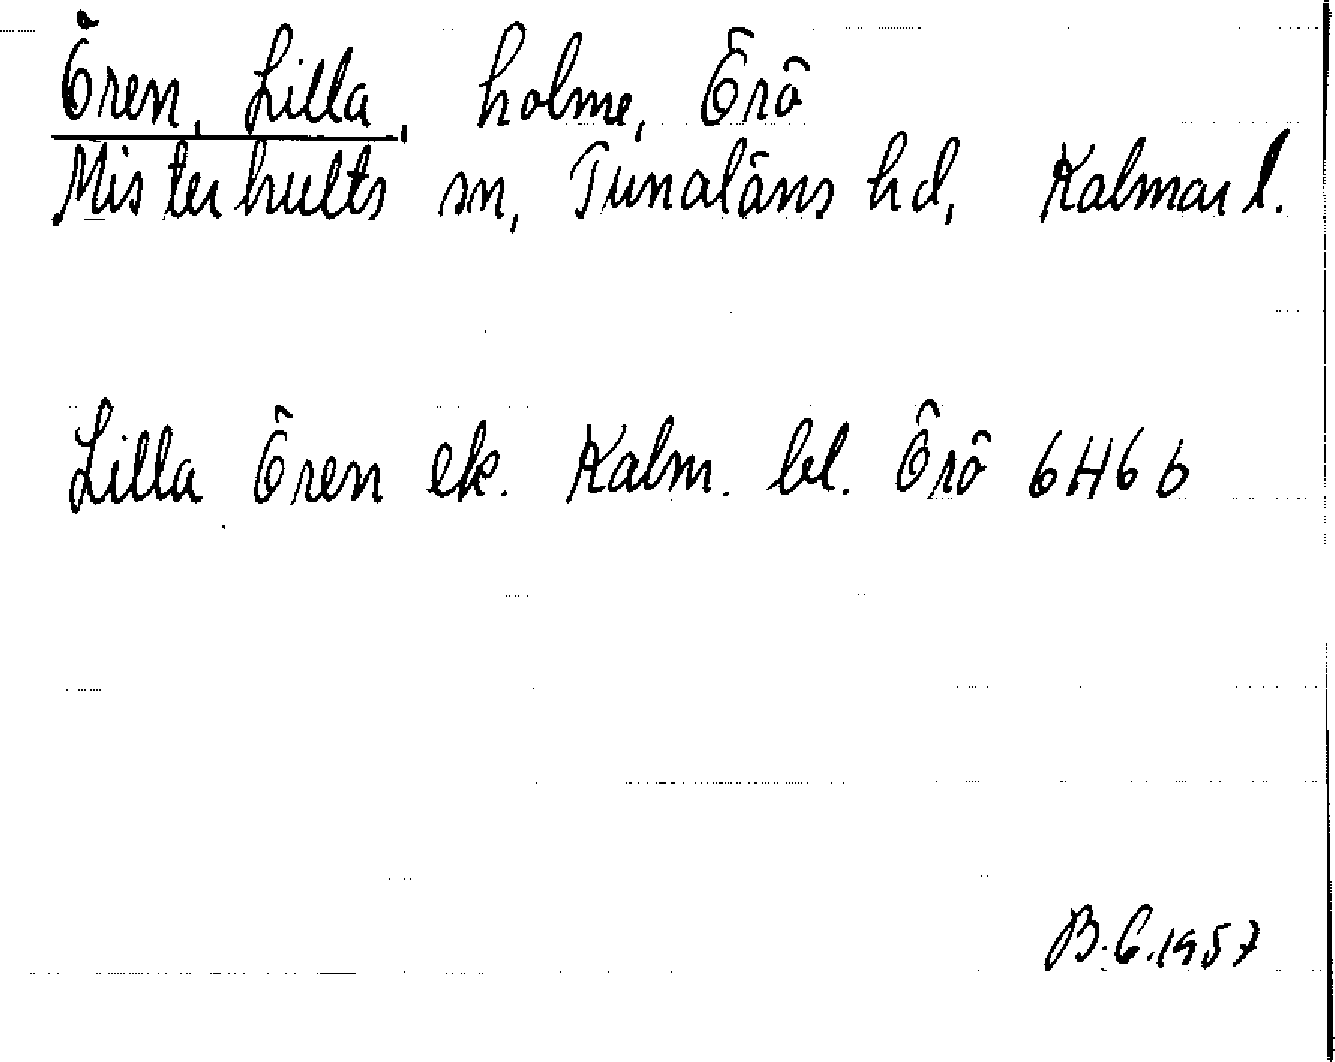 Ören, Lilla, holme, Örö
Misterhults sn, Tunaläns hd, Kalmar l.
Lilla Ören ek. Kalm. bl. Örö 6H6b
B.C.1957